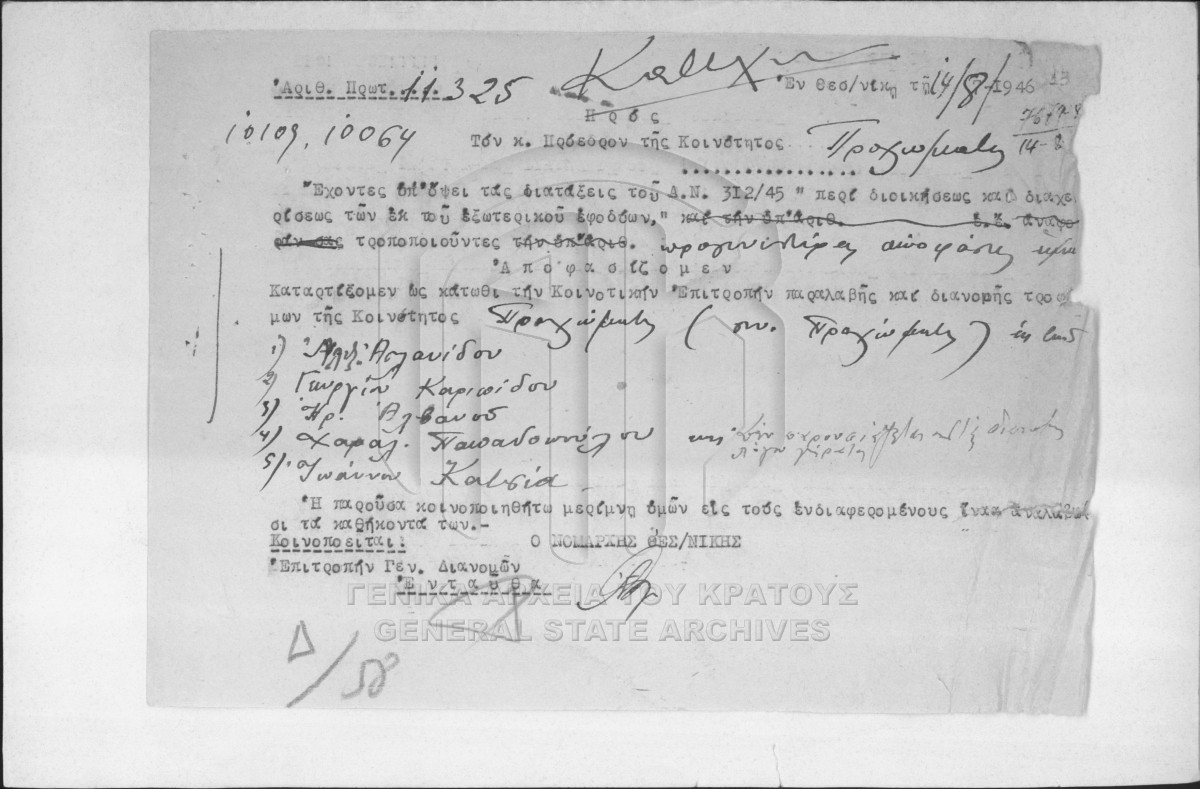 Ἀριθ. Πρωτ. 11.325
Ἐν Θεσ/νίκῃ τῇ 14/8/1946
10109, 10064
14-8
Πρός
Τόν κ. Πρόεδρον τῆς Κοινότητος Προχώματος
Ἔχοντες ὑπ' ὄψει τάς διατάξεις τοῦ Α.Ν. 312/45 " περί διοικήσεως καί διαχε
ρίσεως τῶν ἐκ τοῦ ἐξωτερικοῦ ἐφοδίων," καί τήν ὑπ' ἀριθ. ἐ.ἔ. ἀναφο
ράν σας τροποποιοῦντες τήν ὑπ' ἀριθ. προγενεστέραν ἀπόφασιν
Ἀποφασίζομεν
Καταρτίζομεν ὡς κάτωθι τήν Κοινοτικήν Ἐπιτροπήν παραλαβῆς καί διανομῆς τροφί
μων τῆς Κοινότητος Προχώματος ( συν. Προχώματος ) ἐκ τῶν
1) Ἀσλανίδου
2) Γεωργίου Καριπίδου
3) Ἡρ. Ἀλβανοῦ
4) Χαραλ. Παπαδοπούλου
5) Ἰωάννου Κατσία
Ἡ παροῦσα κοινοποιηθήτω μερίμνῃ ὑμῶν εἰς τούς ἐνδιαφερομένους ἵνα ἀναλάβω
σι τά καθήκοντά των.-
Κοινοποεῖται:
Ο ΝΟΜΑΡΧΗΣ ΘΕΣ/ΝΙΚΗΣ
Ἐπιτροπήν Γεν. Διανομῶν
Ἐνταῦθα
ΓΕΝΙΚΑ ΑΡΧΕΙΑ ΤΟΥ ΚΡΑΤΟΥΣ
GENERAL STATE ARCHIVES
Δ/58